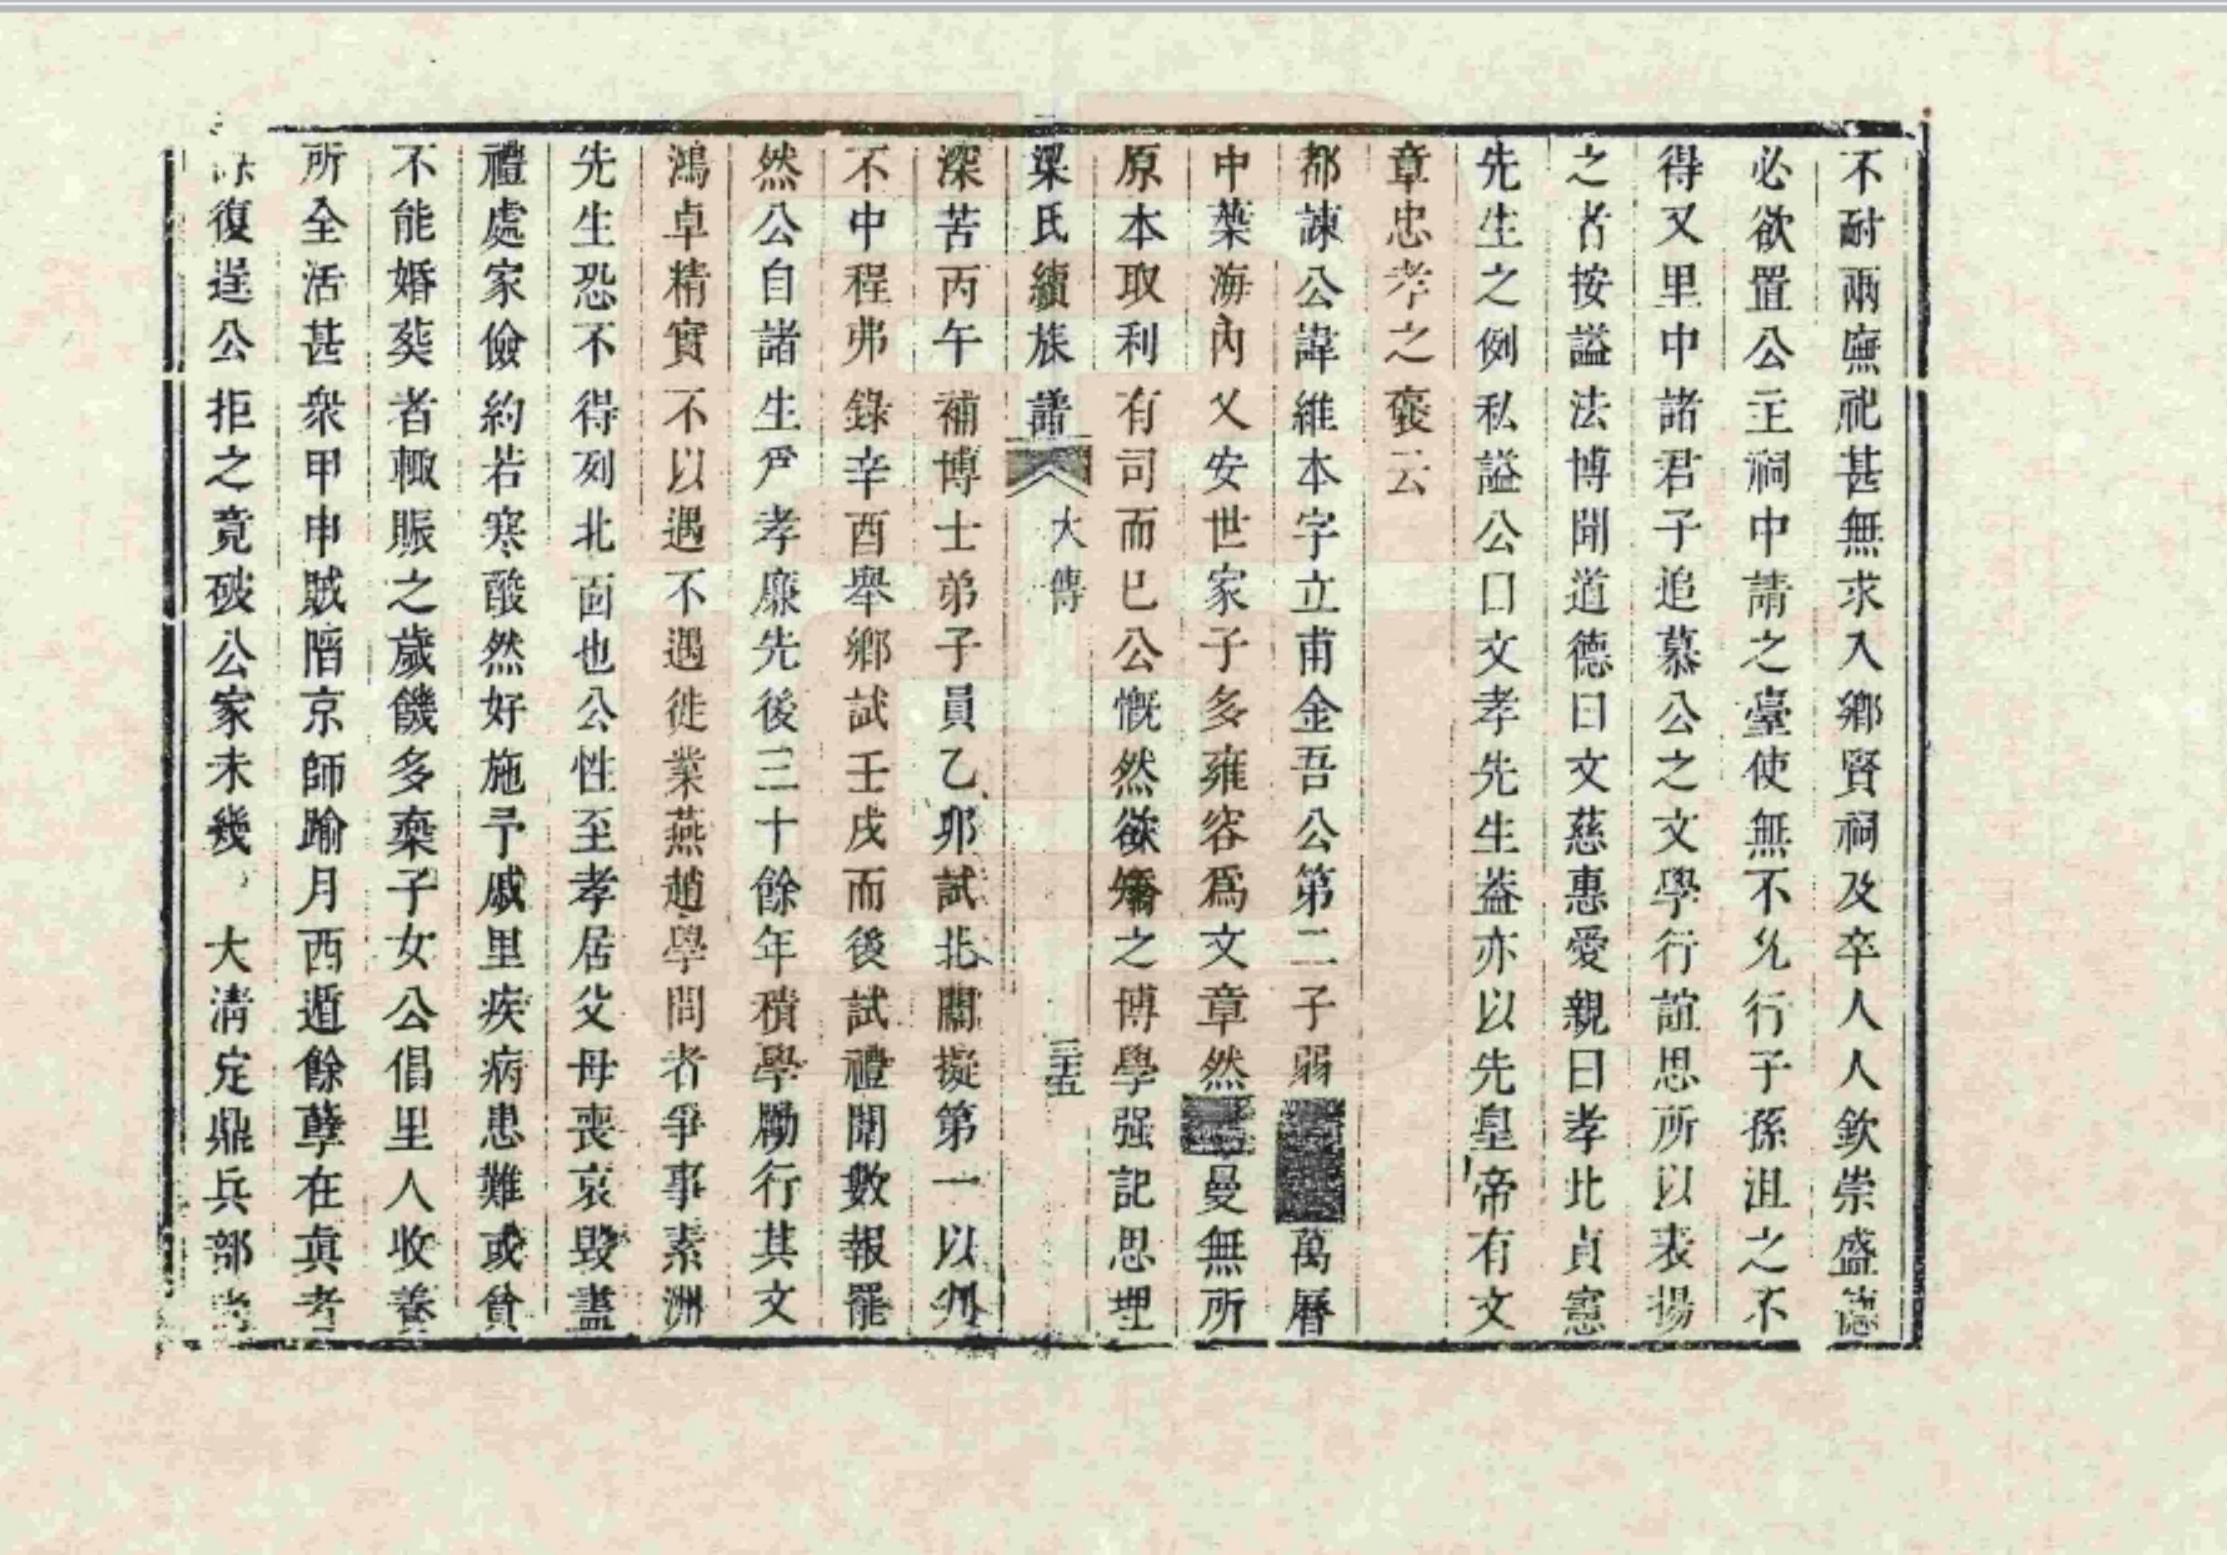 不耐兩廡祀甚無求入鄉賢祠及卒人人欽崇盛德
必欲置公主祠中請之臺使無不允行子孫沮之不
得又里中諸君子追慕公之文學行誼思所以表揚
之者按謚法博聞道德曰文慈惠愛親曰孝北貞憲
先生之例私謚公曰文孝先生葢亦以先皇帝有文
章忠孝之褒云
都諫公諱維本字立甫金吾公第二子弱萬曆
中葉海內乂安世家子多雍容爲文章然曼無所
原本取利有司而已公慨然欲矯之博學强記思理
梁氏續族譜 大傳 三十五
深苦丙午補博士弟子員乙卯試北闈擬第一以判
不中程弗錄辛酉舉鄉試壬戌而後試禮闈數報罷
然公自諸生严孝廉先後三十餘年積學勵行其文
鴻卓精實不以遇不遇徙業燕趙學問者爭事素洲
先生恐不得列北面也公性至孝居父母喪哀毀盡
禮處家儉約若寒酸然好施予戚里疾病患難或貧
不能婚葬者輙賑之歲饑多棄子女公倡里人收養
所全活甚衆甲申賊陷京師踰月西遁餘孽在眞者
復逞公拒之竟破公家未幾 大清定鼎兵部